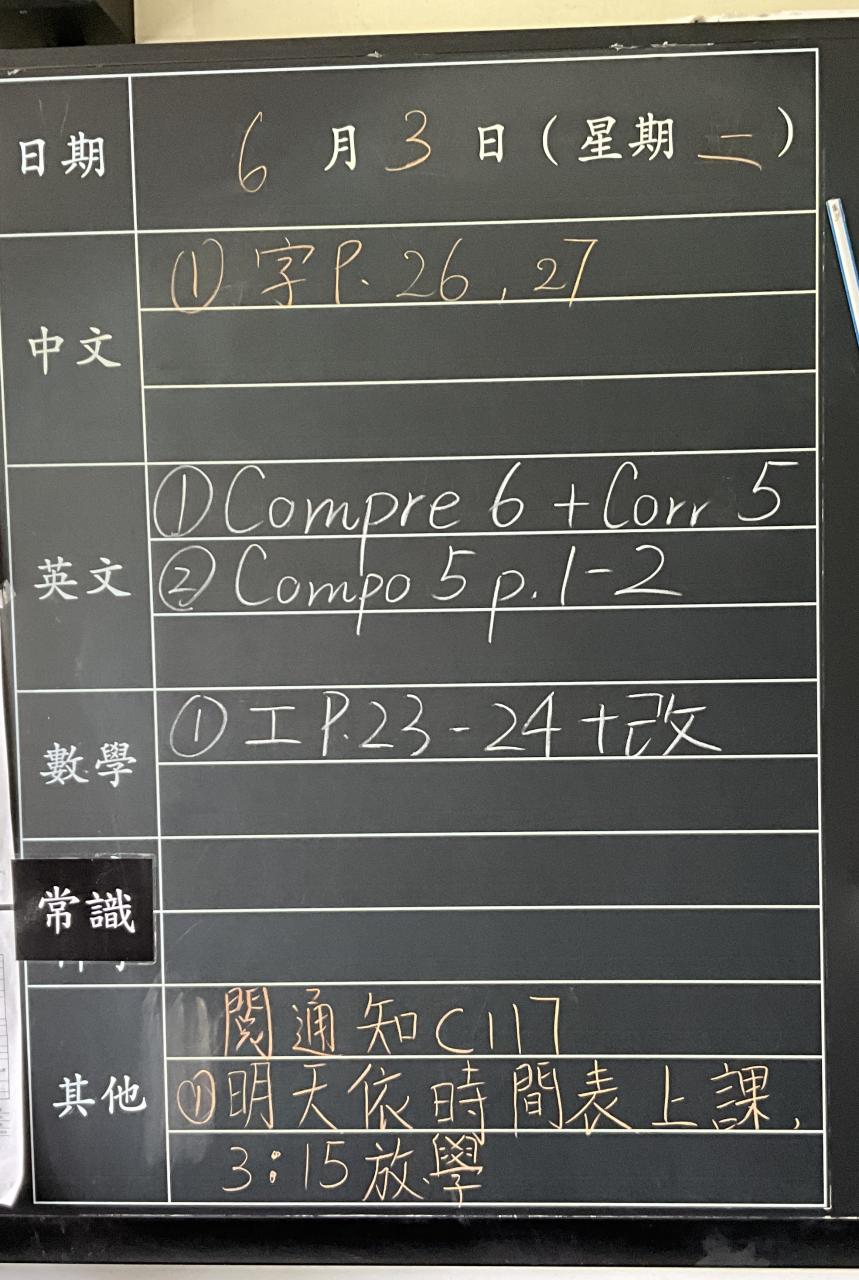 日期 6 月 3 日（星期 二）
中文 ① 字 P. 26 , 27
英文 ① Compre 6 + Corr 5
② Compo 5 p. 1-2
數學 ① 工 P. 23 - 24 + 改
常識
其他 閱通知 C117
① 明天依時間表上課,
3:15 放學